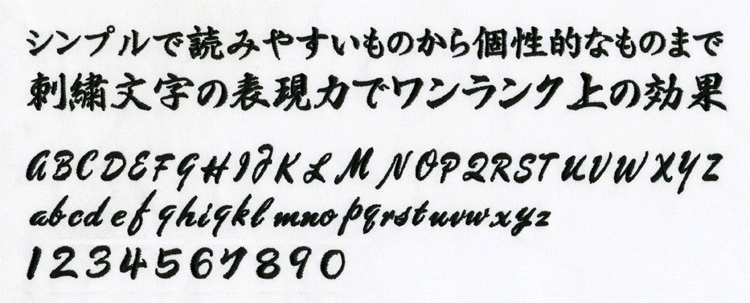 シンプルで読みやすいものから個性的なものまで
刺繍文字の表現力でワンランク上の効果
ABCDEFGHIJKLMNOPQRSTUVWXYZ
abcdefghijklmnopqrstuvwxyz
1234567890